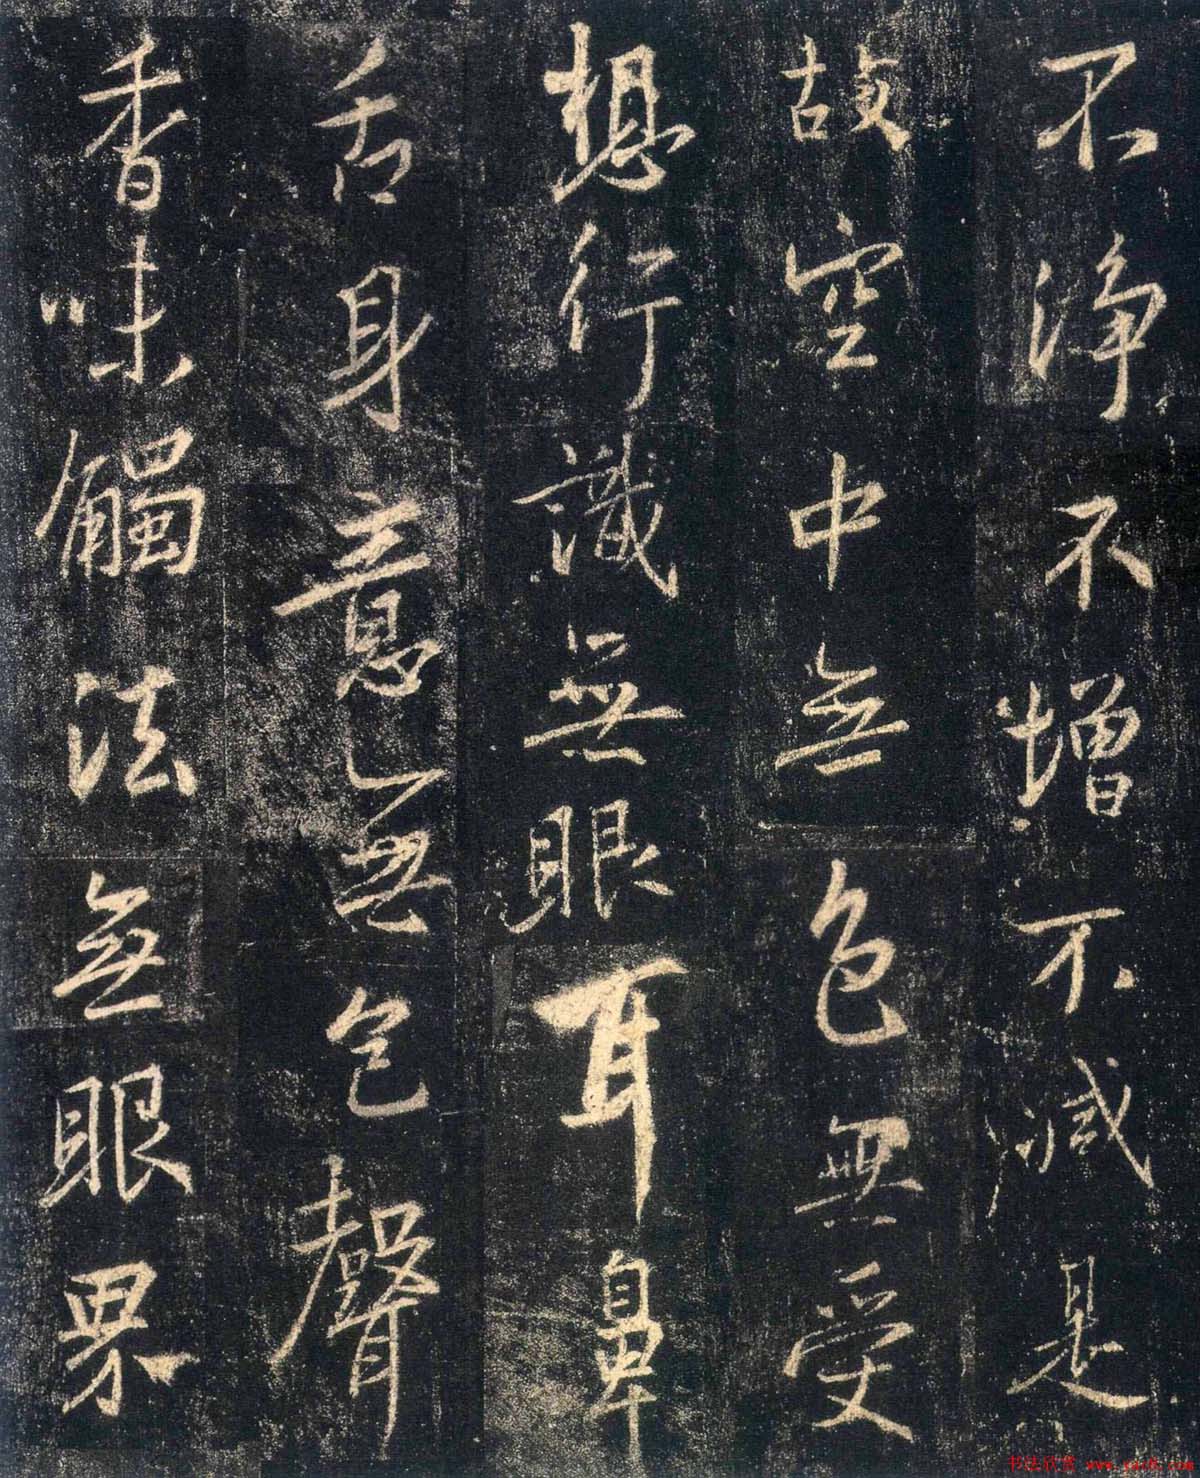 不淨不增不減是
故空中無色無受
想行識無眼耳鼻
舌身意無色聲
香味觸法無眼界
书法欣赏 www.yac8.com